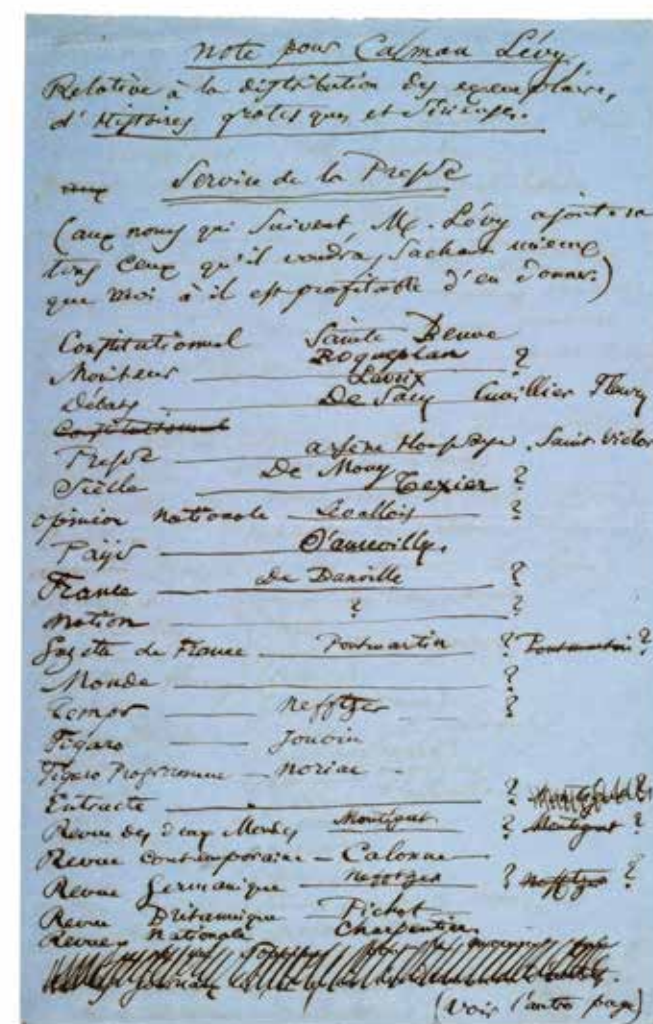 note pour Calman Lévy,
Relative à la distribution des exemplaires,
d'Histoires grotesques et Sérieuses.
Service de la Presse
(aux noms qui suivent, M. Lévy ajoutera
tous ceux qu'il voudra, Sachant mieux
que moi à il est profitable d'en donner.)
Constitutionnel Sainte Beuve
Roqueplan ?
Moniteur Lavoix
Débats De Sacy Cuvillier Fleury
Constitutionnel
Presse arsène Houssaye. Saint Victor
Siècle De Mouy Texier ?
opinion nationale Levallois ?
Pays D'aurevilly.
France de Banville ?
nation ? ?
Gazette de France Pontmartin ? Pontmartin ?
Monde ?
Temps nefftzer ?
Figaro Jouvin
Figaro Programme noriac
Entracte ?
Revue des deux Mondes Montégut ? Montégut ?
Revue Contemporaine Calonne
Revue Germanique nefftzer ? nefftzer ?
Revue Britannique Pichot
Revue nationale Charpentier
(Voir l'autre page)